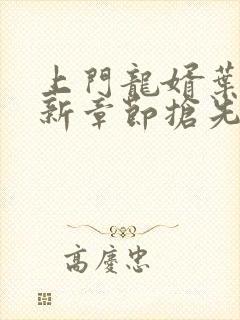 上門龍婿葉
新章節搶先
高慶忠